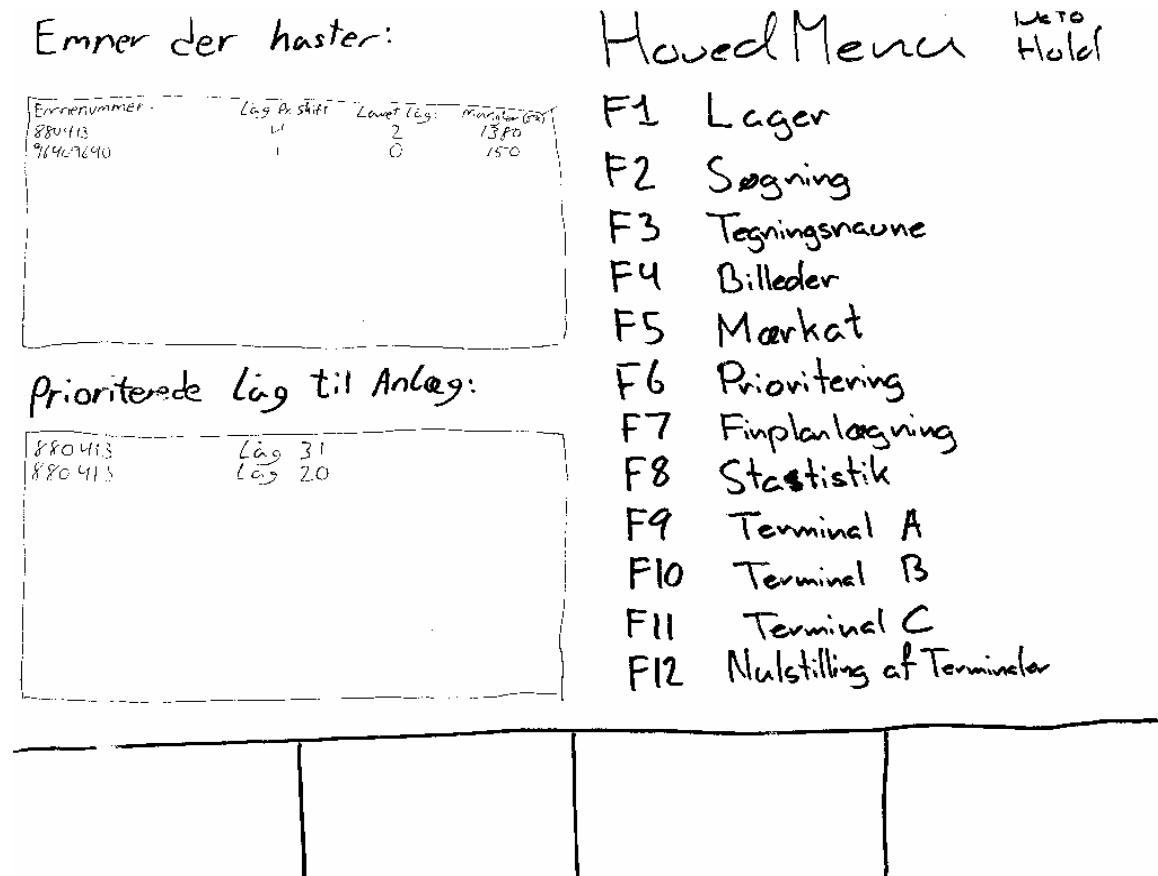 Emner der haster:
Emnenummer: Låg Pr. Shift Lavet låg:
880413 2 1380
0 150
Prioriterede låg til Anlæg:
880413 Låg 31
880413 Låg 20
HovedMenu
Hold
F1 Lager
F2 Søgning
F3 Tegningsnavne
F4 Billeder
F5 Mærkat
F6 Prioritering
F7 Finplanlægning
F8 Stastistik
F9 Terminal A
F10 Terminal B
F11 Terminal C
F12 Nulstilling af Terminaler